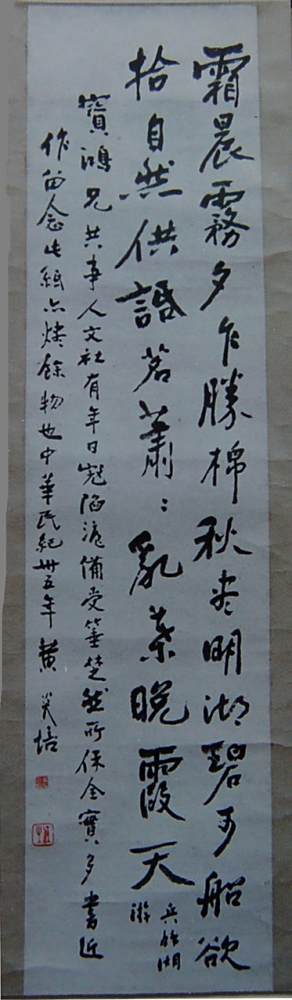 霜晨霧夕乍勝棉秋老明湖碧可船欲
拾自然供語茗蕭：亂葉晚霞天
玄武湖游
寶鴻兄共事人文社有年日寇陷滬備受箠楚然所保全實多書近
作留念此紙亦燒餘物也中華民紀卅五年黃炎培